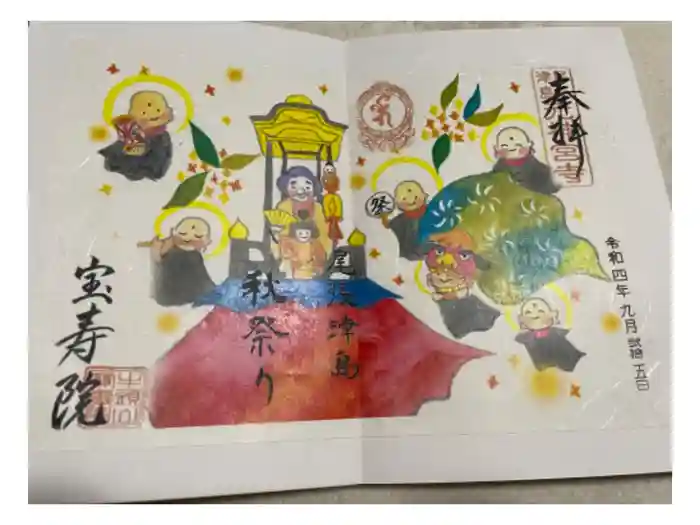 奉拝
令和四年 九月 弐拾五日
祭
尾張津島
秋祭り
宝寿院